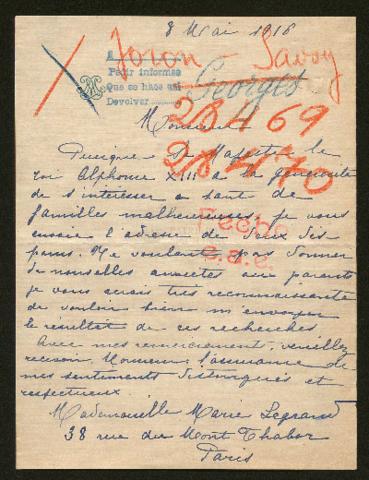 8 Mai 1916
Joron - Savoy
Pedir informes
Que se hace así
Devolver
Georges
28469
Monsieur
28470
Puisque Sa Majesté le
roi Alphonse XIII a la générosité
de s'intéresser a tant de
familles malheureuses, je vous
envoie l'adresse de deux dis-
parus. Ne voulant pas donner
de nouvelles anxietes aux parents
je vous serais très reconnaissante
de vouloir bien m'envoyer
le résultat de ces recherches
Avec mes remerciement, veuillez
recevoir Monsieur l'assurance de
mes sentiments distingués et
respectueux
Pecho
c.a.c.
Mademoiselle Marie Legrand
38 rue du Mont Thabor
Paris